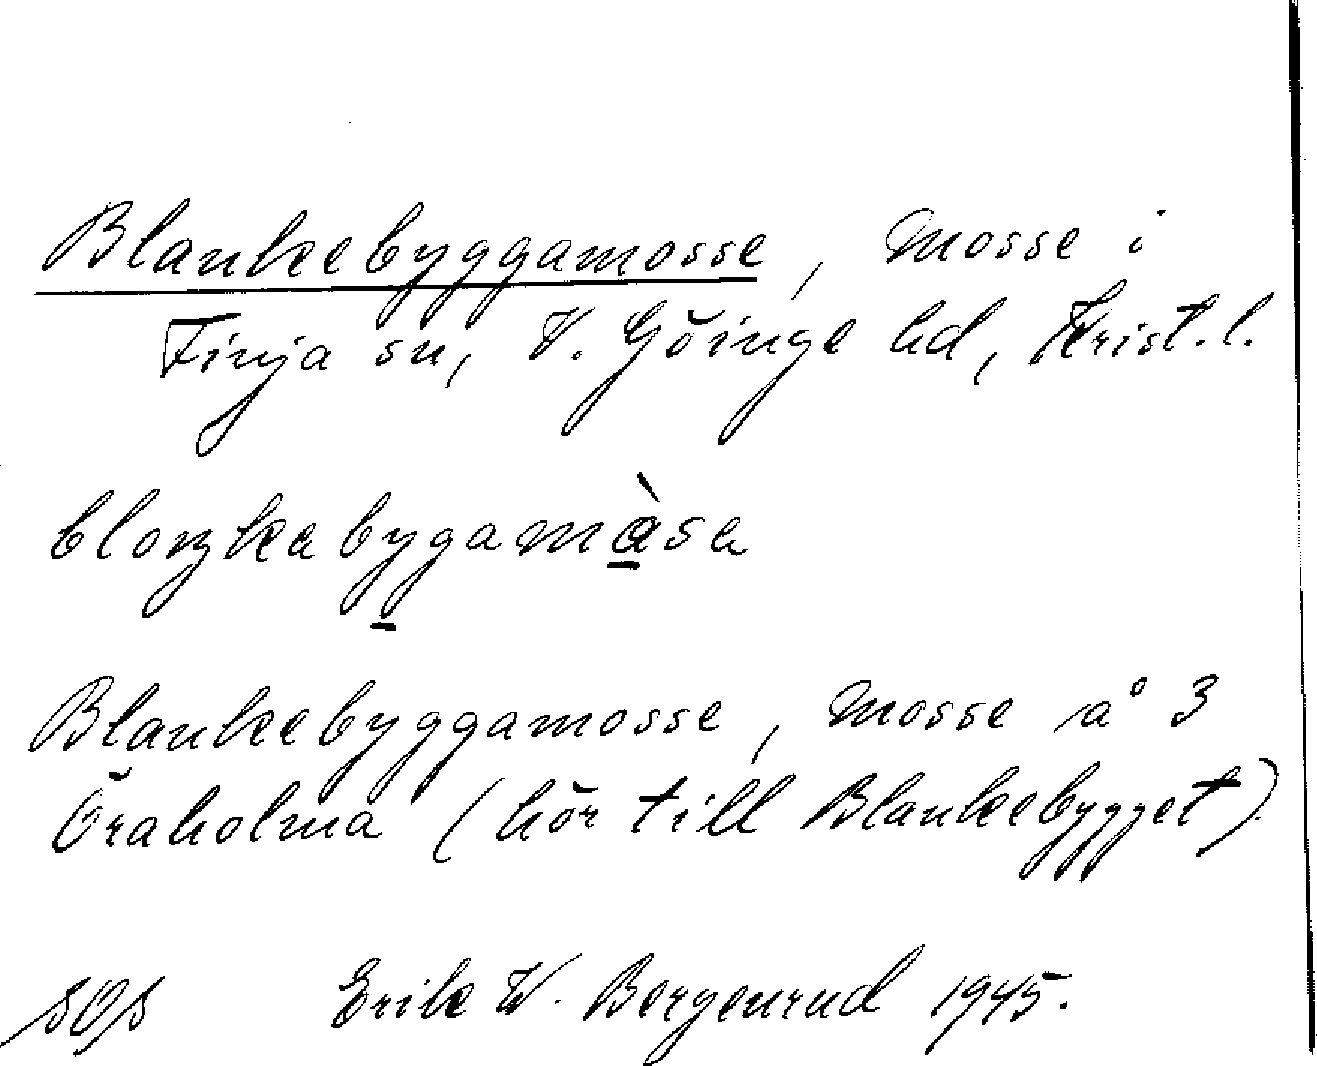 Blankebyggamosse, Mosse i
Finja sn, V. Göinge hd, Krist.l.
blaŋkabygamàsa
Blankebyggamosse, Mosse å 3
Öraholma (hör till Blankebygget)
Erik W. Bergenrud 1945.